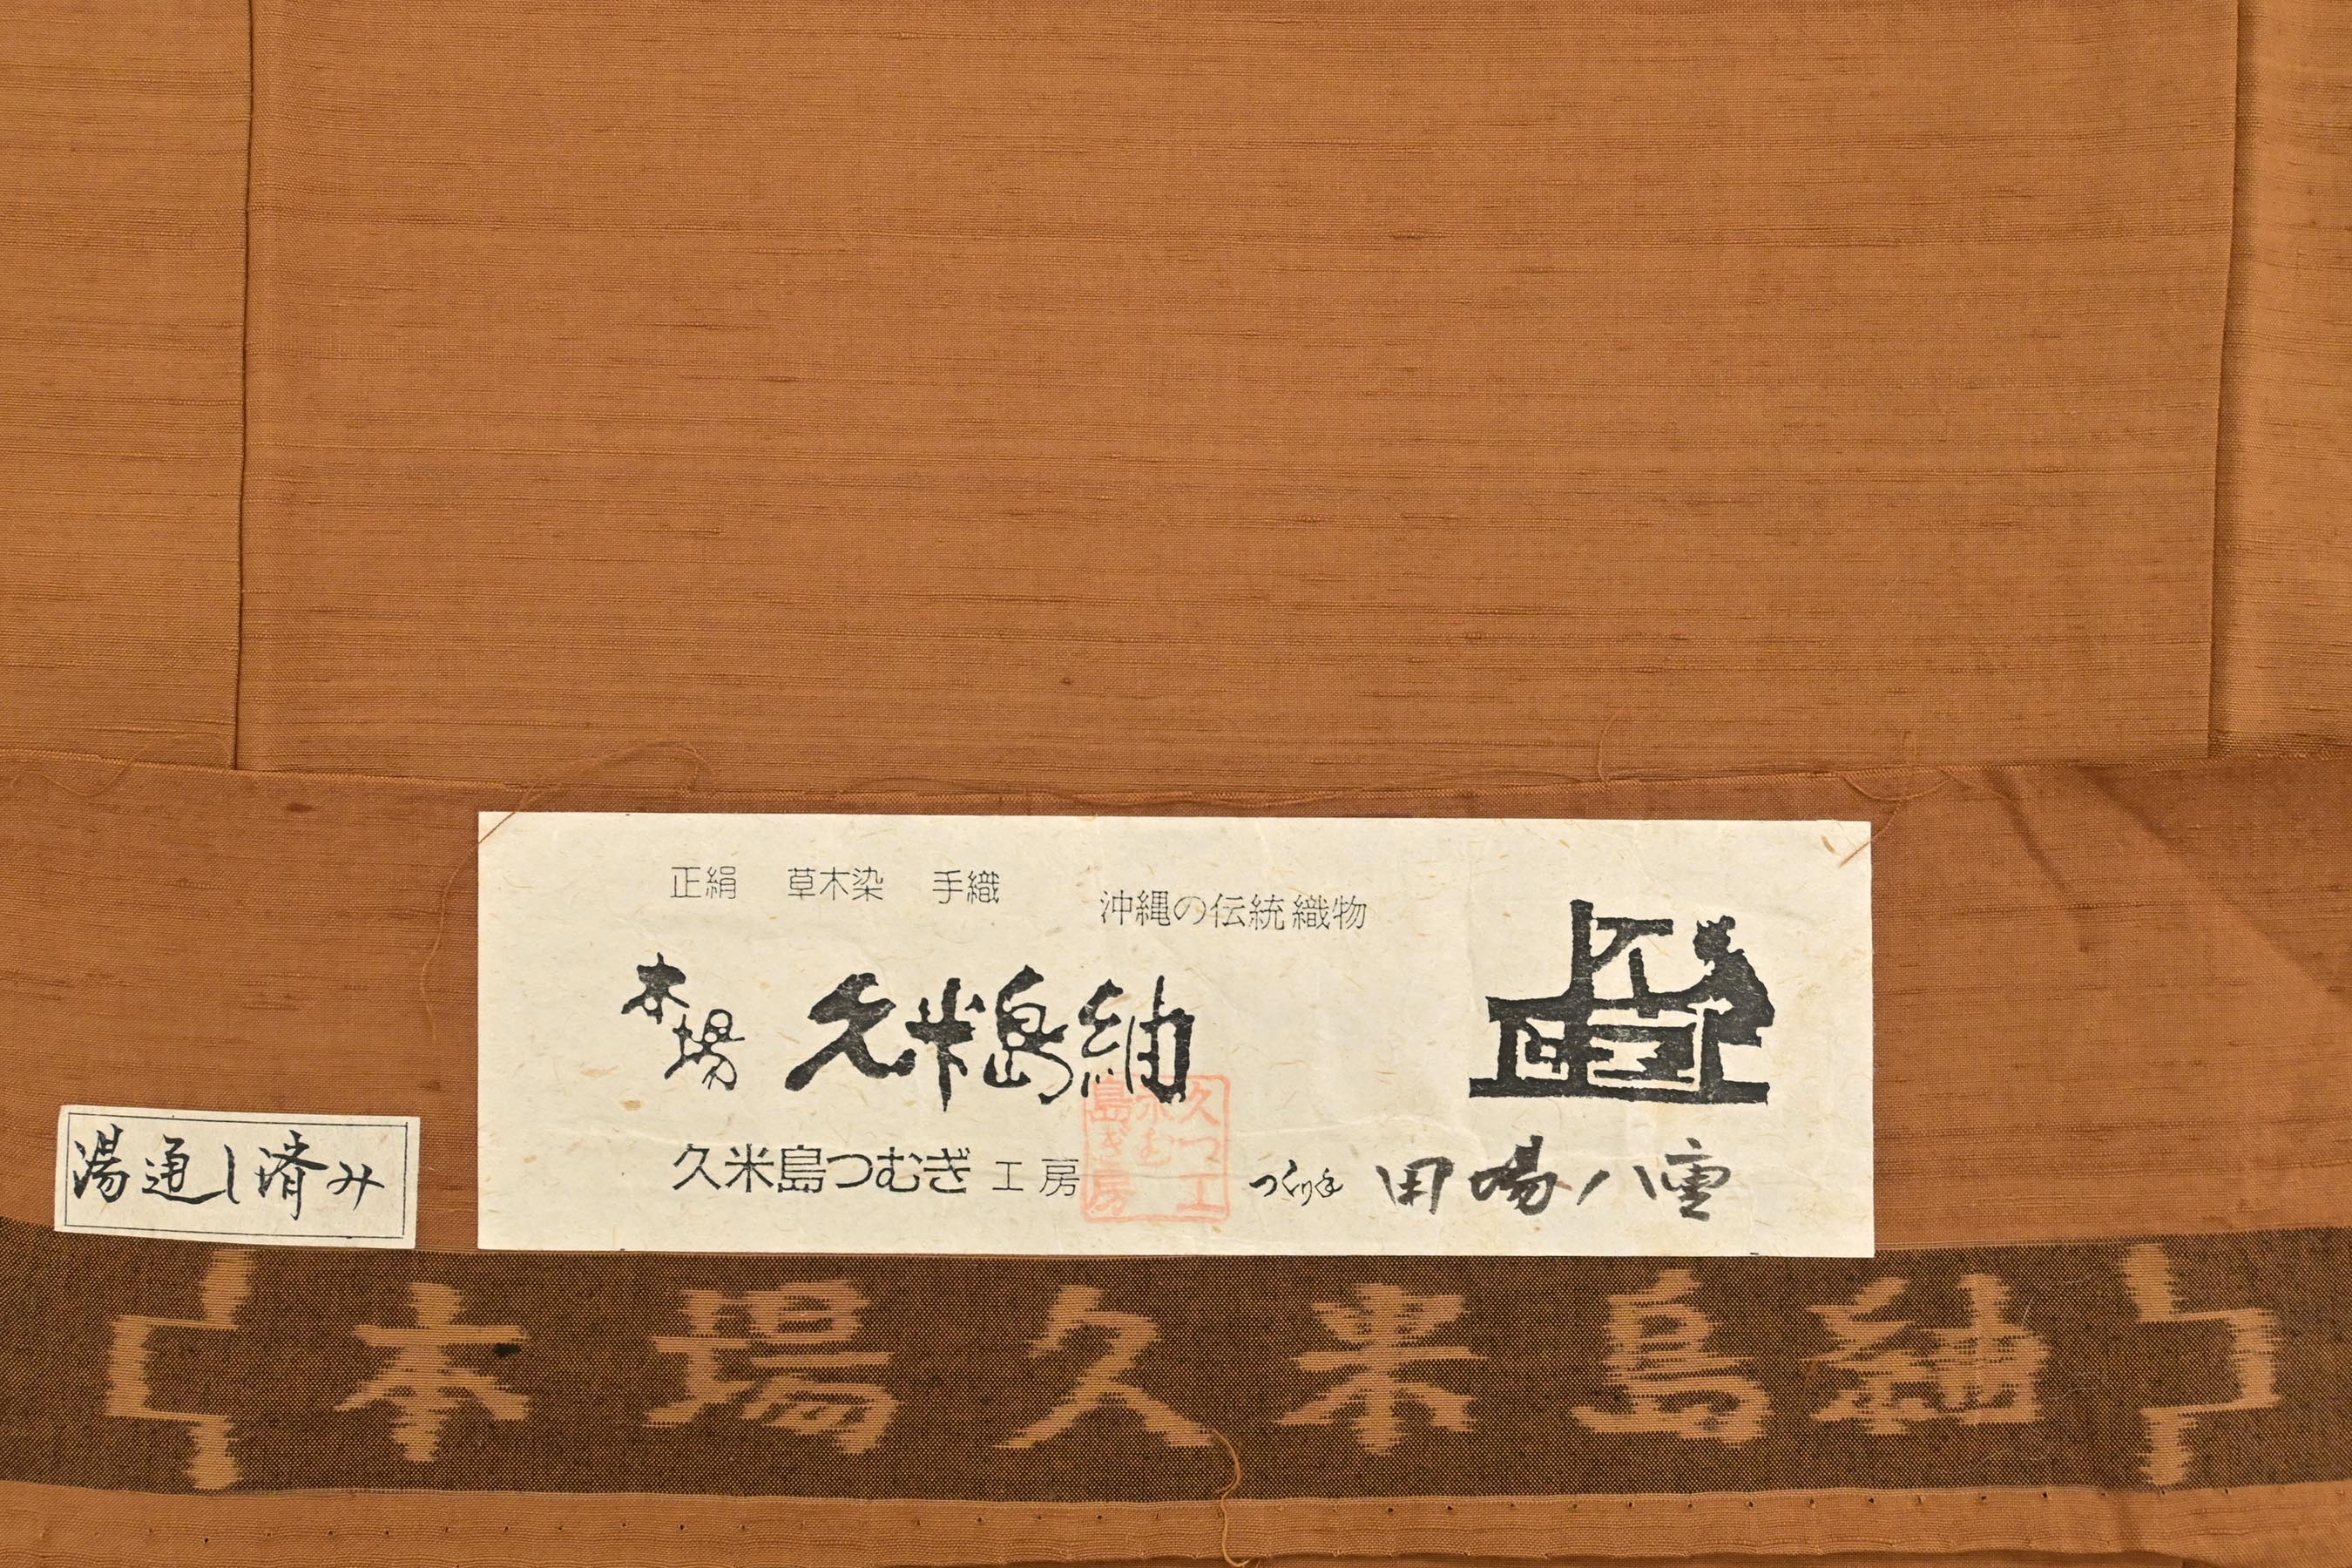 正絹 草木染 手織
沖縄の伝統織物
本場 久米島紬
久米島つむぎ 工房
久米島つむぎ工房
つくり手 田場八重
湯通し済み
本場久米島紬